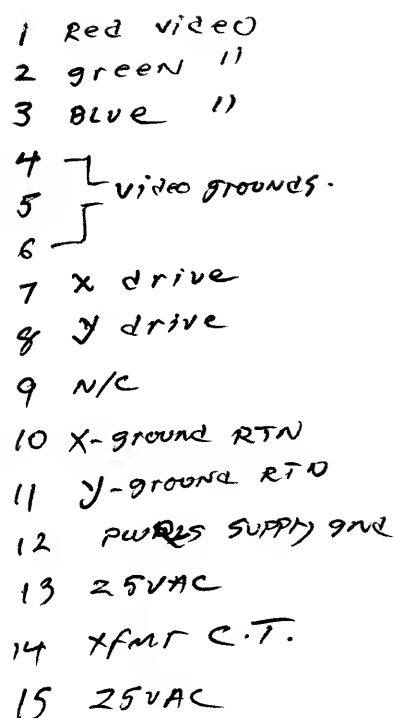 1 Red video
2 green "
3 Blue "
4
5 video grounds.
6
7 X drive
8 Y drive
9 N/C
10 X-ground RTN
11 Y-ground RTN
12 supply gnd
13 25VAC
14 xfmr C.T.
15 25VAC